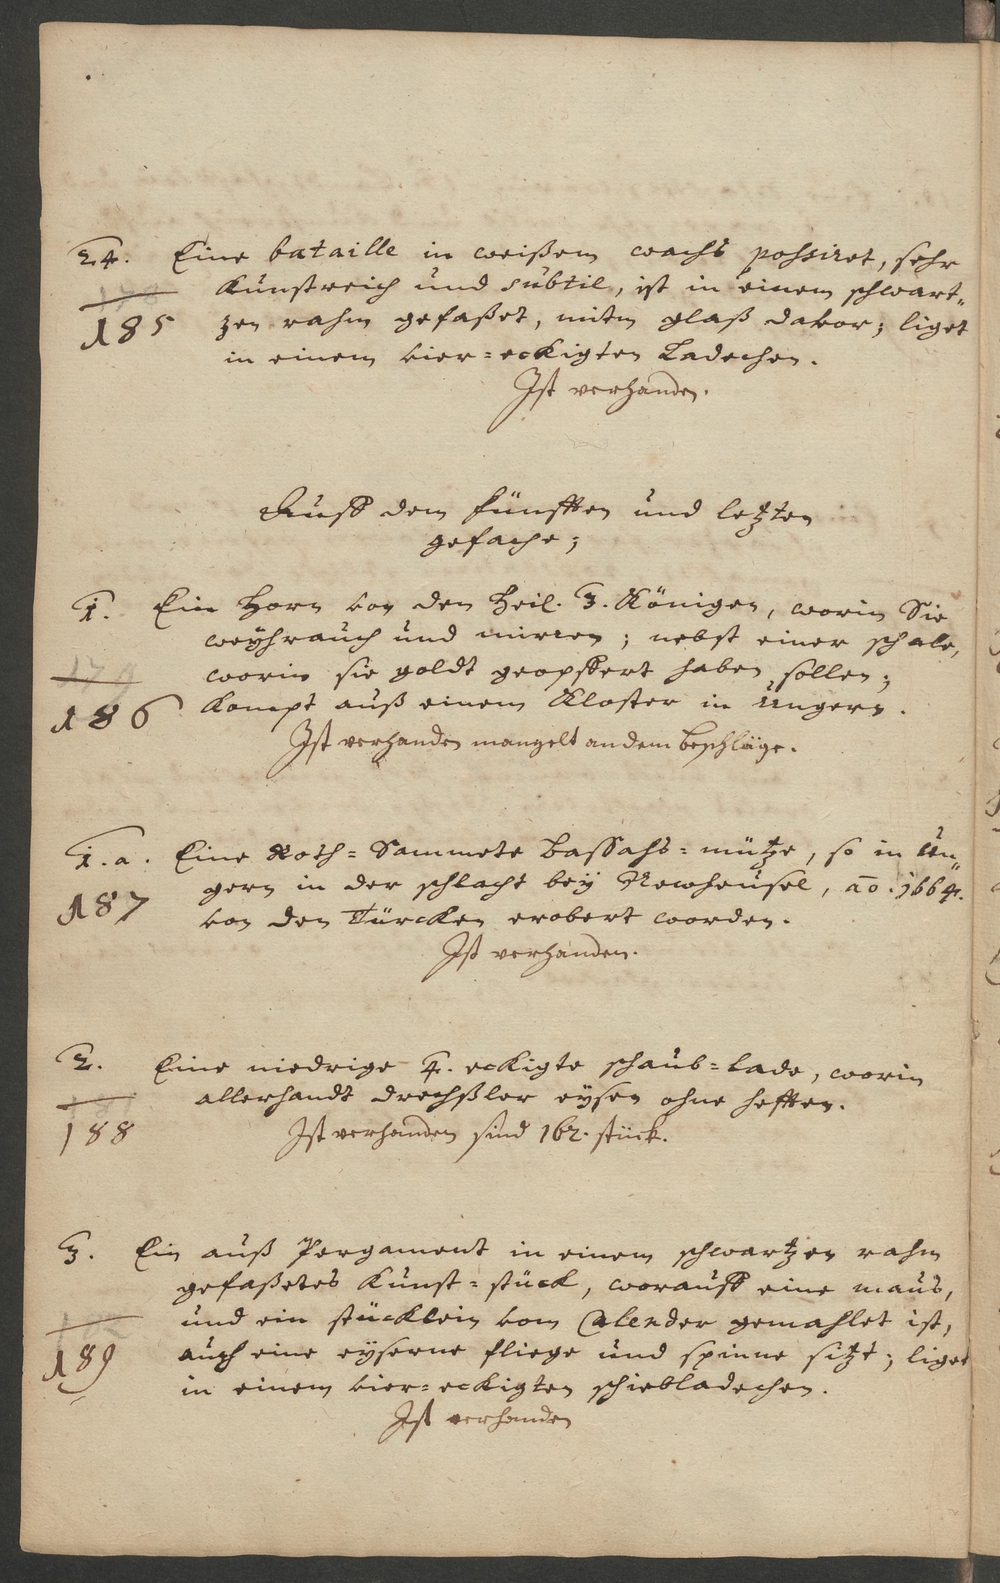 24. Eine bataille in weißem wachs poßiret, sehr
185 Künstreich und subtil, ist in einem schwart=
zen rahm gefaßet, mitm glaß davor; liget
in einem vier=eckigten Ladechen.
Ist verhanden.
Auff dem fünfften und letzten
gefache;
1. Ein Horn von den Heil. 3. Königen, worin Sie
weyhrauch und mirren; nebst einer schale,
worin sie goldt geopffert haben sollen;
186 Kompt auß einem Kloster in Ungern.
Ist verhanden mangelt an dem beschläge.
1.a. Eine Roth=Sammete Bassahs=mütze, so in Un=
187 gern in der schlacht beÿ Newheusel, ao. 1664.
von den Türcken erobert worden.
Ist verhanden.
2. Eine niedrige 4. eckigte schaub=lade, worin
allerhandt drechßler eysen ohne hefften.
188 Ist verhanden sind 162. stück.
3. Ein auß Pergament in einem schwartzen rahm
gefaßetes Kunst=stück, worauff eine maus,
und ein stücklein vom Calender gemahlet ist,
189 auch eine eyserne fliege und spinne sitzt; liget
in einem vier=eckigten schiebladechen.
Ist verhanden